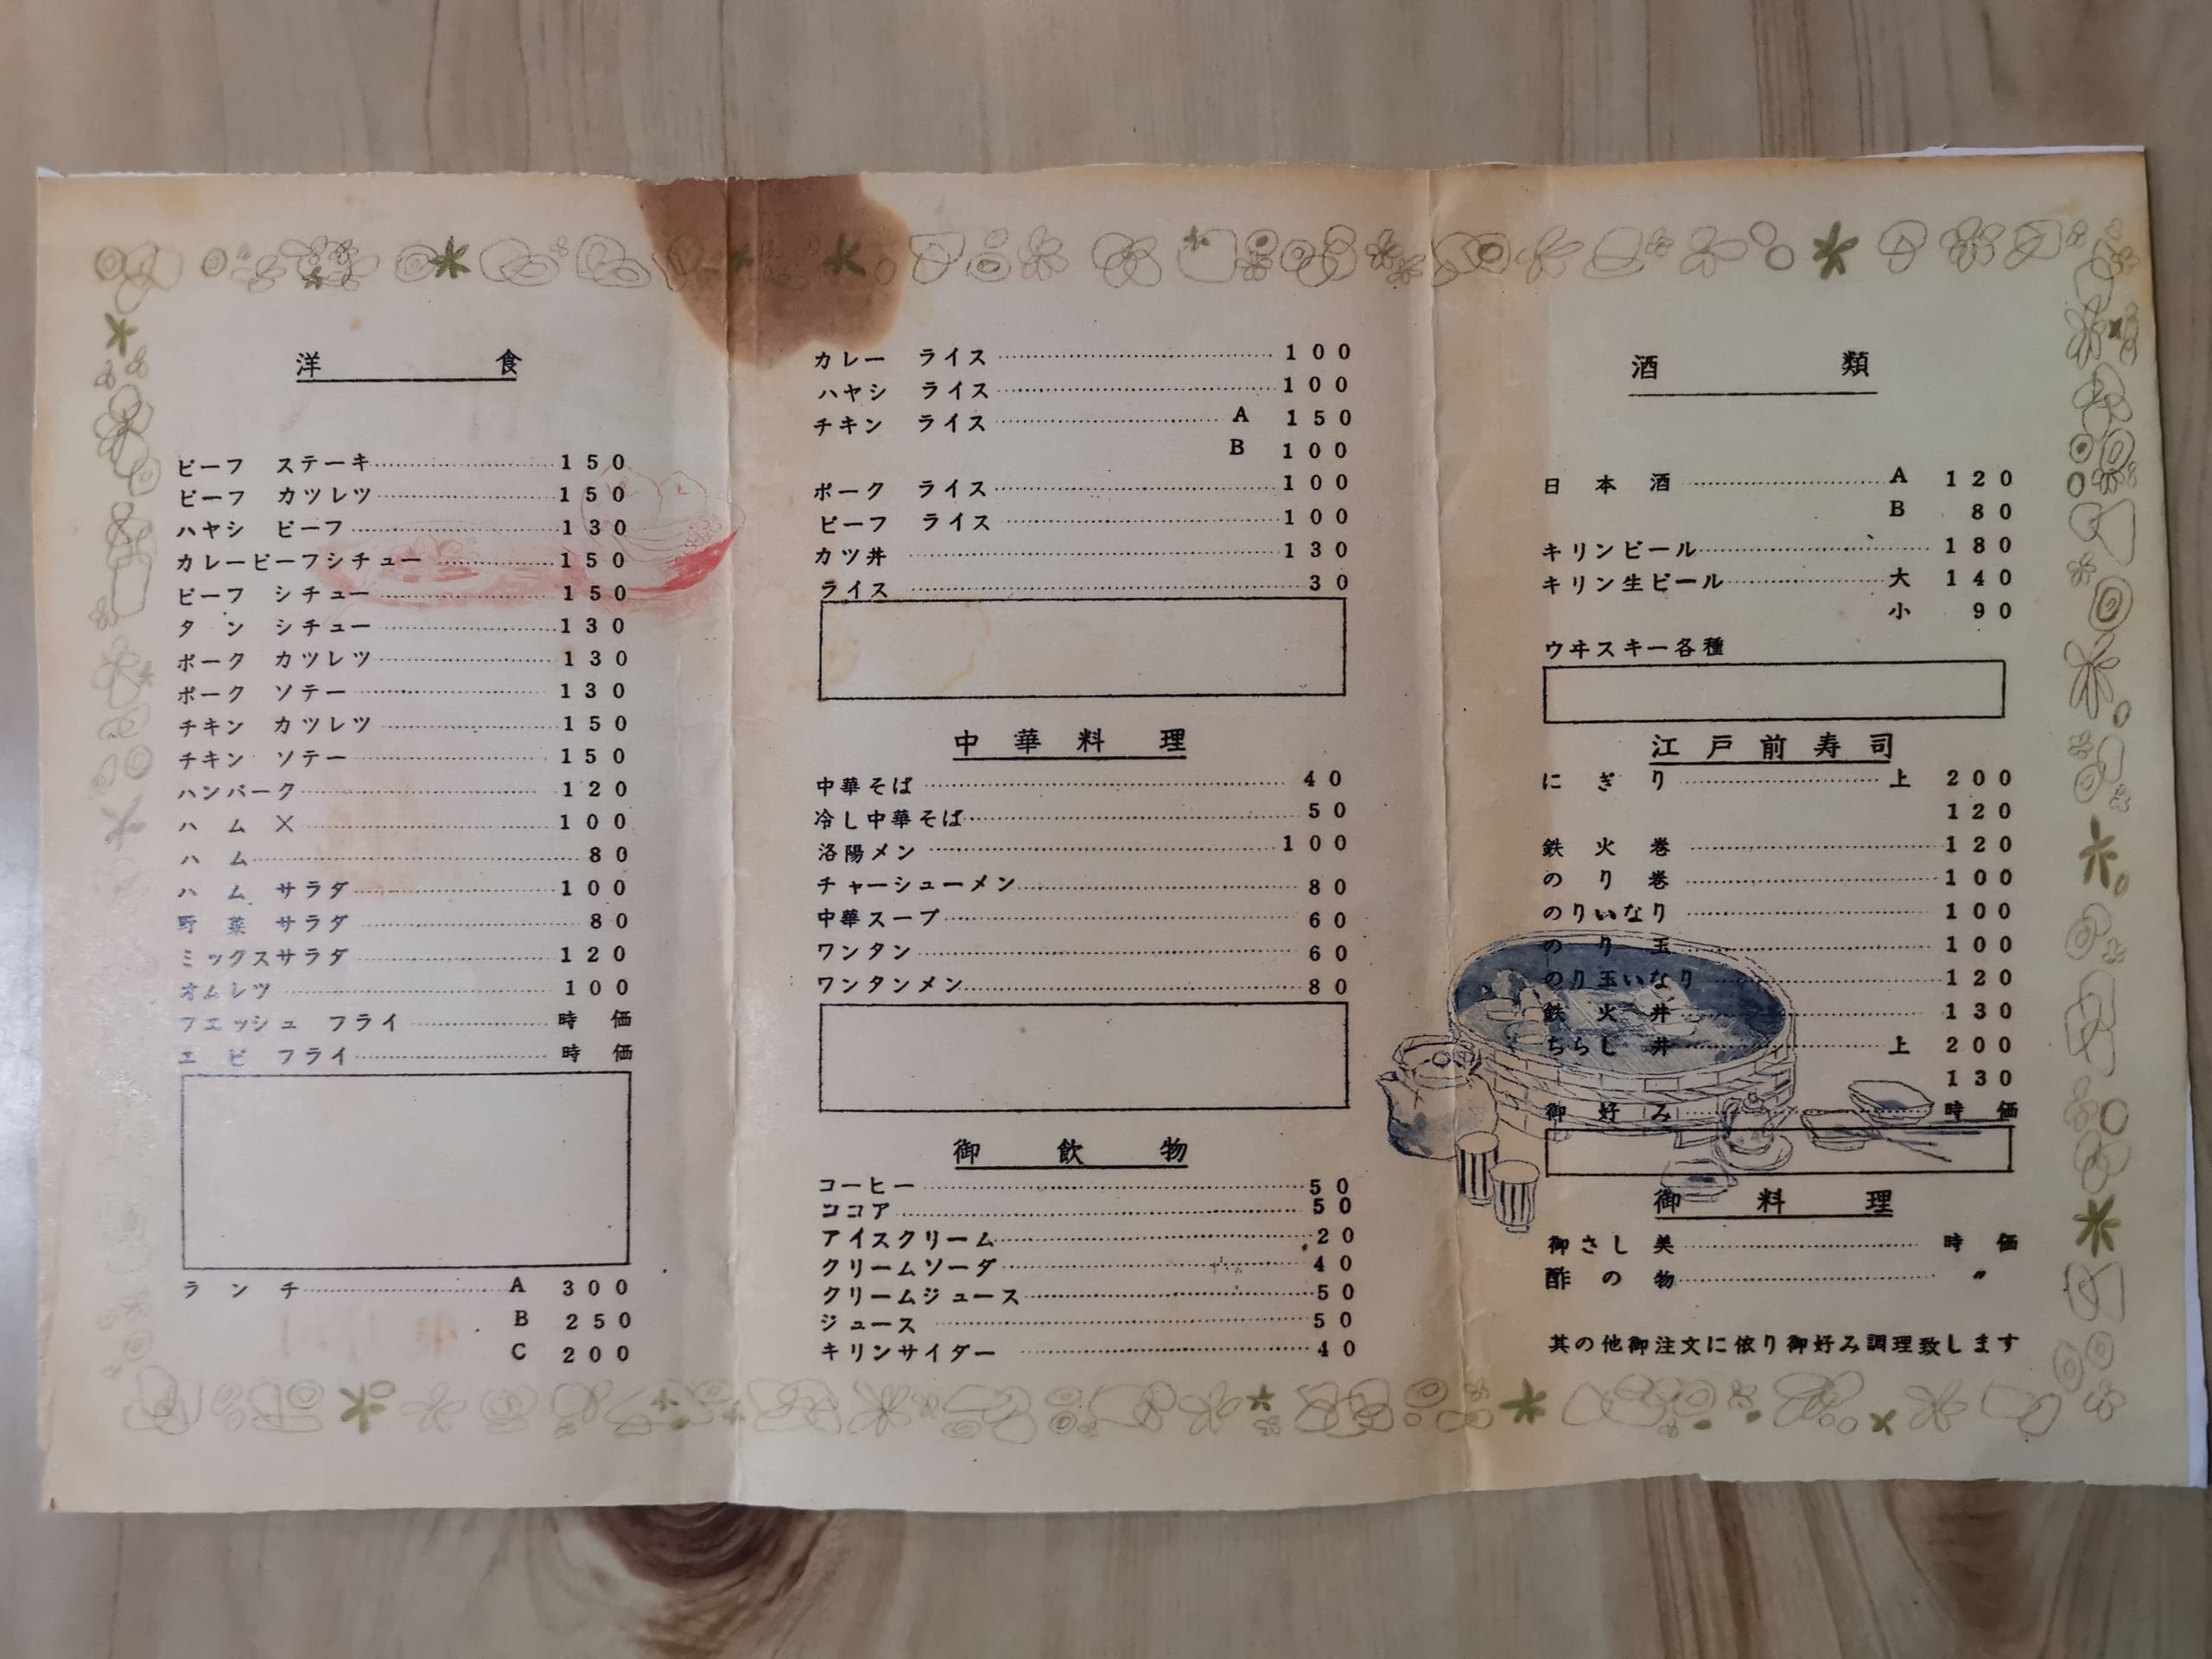 洋食
ビーフ ステーキ 150
ビーフ カツレツ 150
ハヤシ ビーフ 130
カレービーフシチュー 150
ビーフ シチュー 150
タン シチュー 130
ポーク カツレツ 130
ポーク ソテー 130
チキン カツレツ 150
チキン ソテー 150
ハンバーク 120
ハム X 100
ハム 80
ハム サラダ 100
野菜 サラダ 80
ミックスサラダ 120
オムレツ 100
フエッシュ フライ 時価
エビ フライ 時価
ランチ A 300
B 250
C 200
カレー ライス 100
ハヤシ ライス 100
チキン ライス A 150
B 100
ポーク ライス 100
ビーフ ライス 100
カツ丼 130
ライス 30
中華料理
中華そば 40
冷し中華そば 50
洛陽メン 100
チャーシューメン 80
中華スープ 60
ワンタン 60
ワンタンメン 80
御飲物
コーヒー 50
ココア 50
アイスクリーム 20
クリームソーダ 40
クリームジュース 50
ジュース 50
キリンサイダー 40
酒類
日本酒 A 120
B 80
キリンビール 180
キリン生ビール 大 140
小 90
ウヰスキー各種
江戸前寿司
にぎり 上 200
120
鉄火巻 120
のり巻 100
のりいなり 100
のり玉 100
のり玉いなり 120
鉄火丼 130
ちらし丼 上 200
130
御好み 時価
御料理
御さし美 時価
酢の物 〃
其の他御注文に依り御好み調理致します